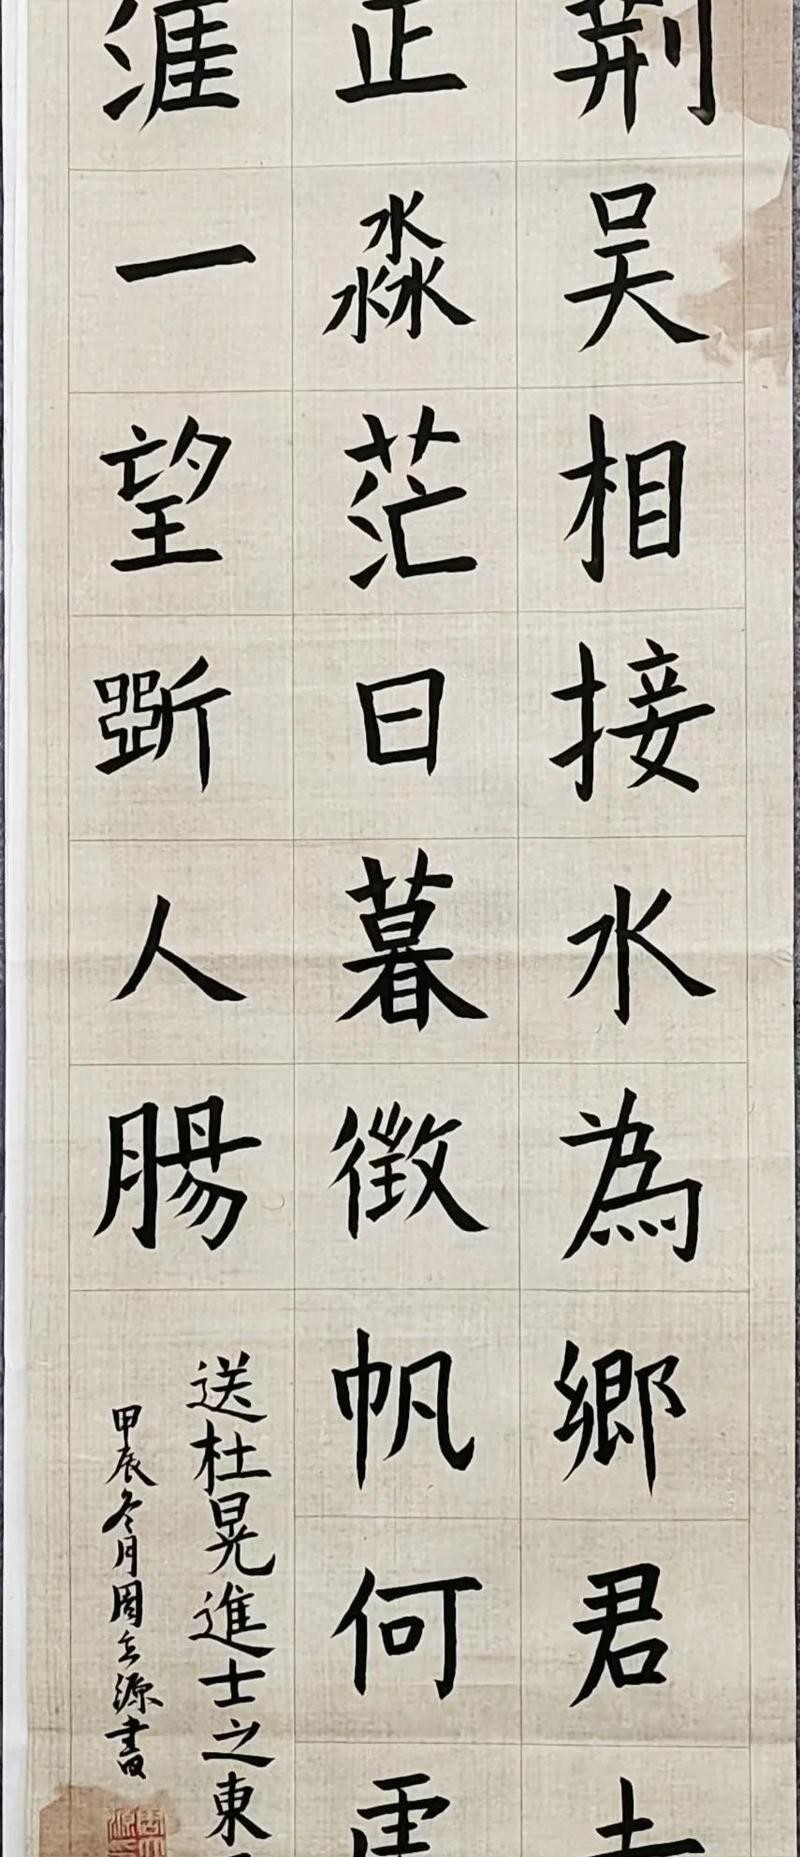 荆吴相接水為鄉君去
正淼茫日暮徵帆何處
涯一望斷人腸
送杜晃進士之東
甲辰冬月周立源書